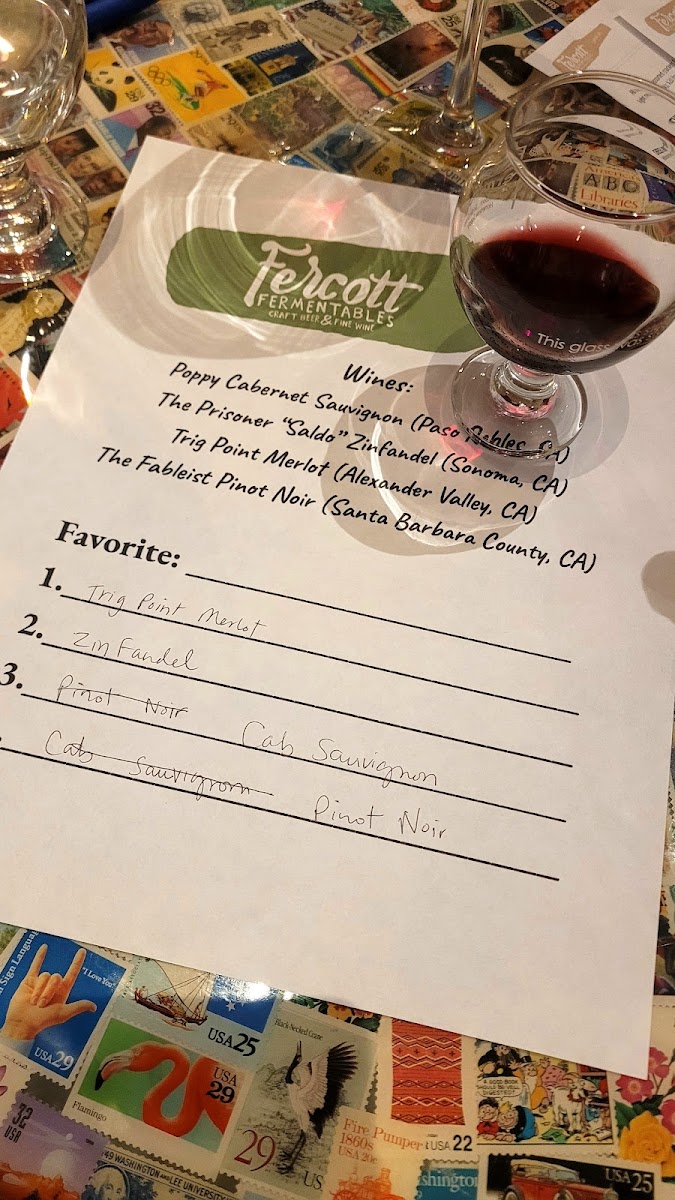 Fercott
FERMENTABLES
CRAFT BEER & FINE WINE
This glass was
ABC
Libraries
Wines:
Poppy Cabernet Sauvignon (Paso Robles, CA)
The Prisoner "Saldo" Zinfandel (Sonoma, CA)
Trig Point Merlot (Alexander Valley, CA)
The Fableist Pinot Noir (Santa Barbara County, CA)
Favorite:
1. Trig Point Merlot
2. Zinfandel
3. Pinot Noir Cab Sauvignon
Cab Sauvignon Pinot Noir
Sign Language
"I Love You"
USA 29
USA 25
Black-Necked Crane
Flamingo
USA 29
29
US
32
USA
Fire Pumper
1860s
USA 20c
USA 22
A GOOD BOOK
SHOULD BE WELL
DIGESTED!
1749 WASHINGTON AND LEE UNIVERSITY
Washington
USA 25